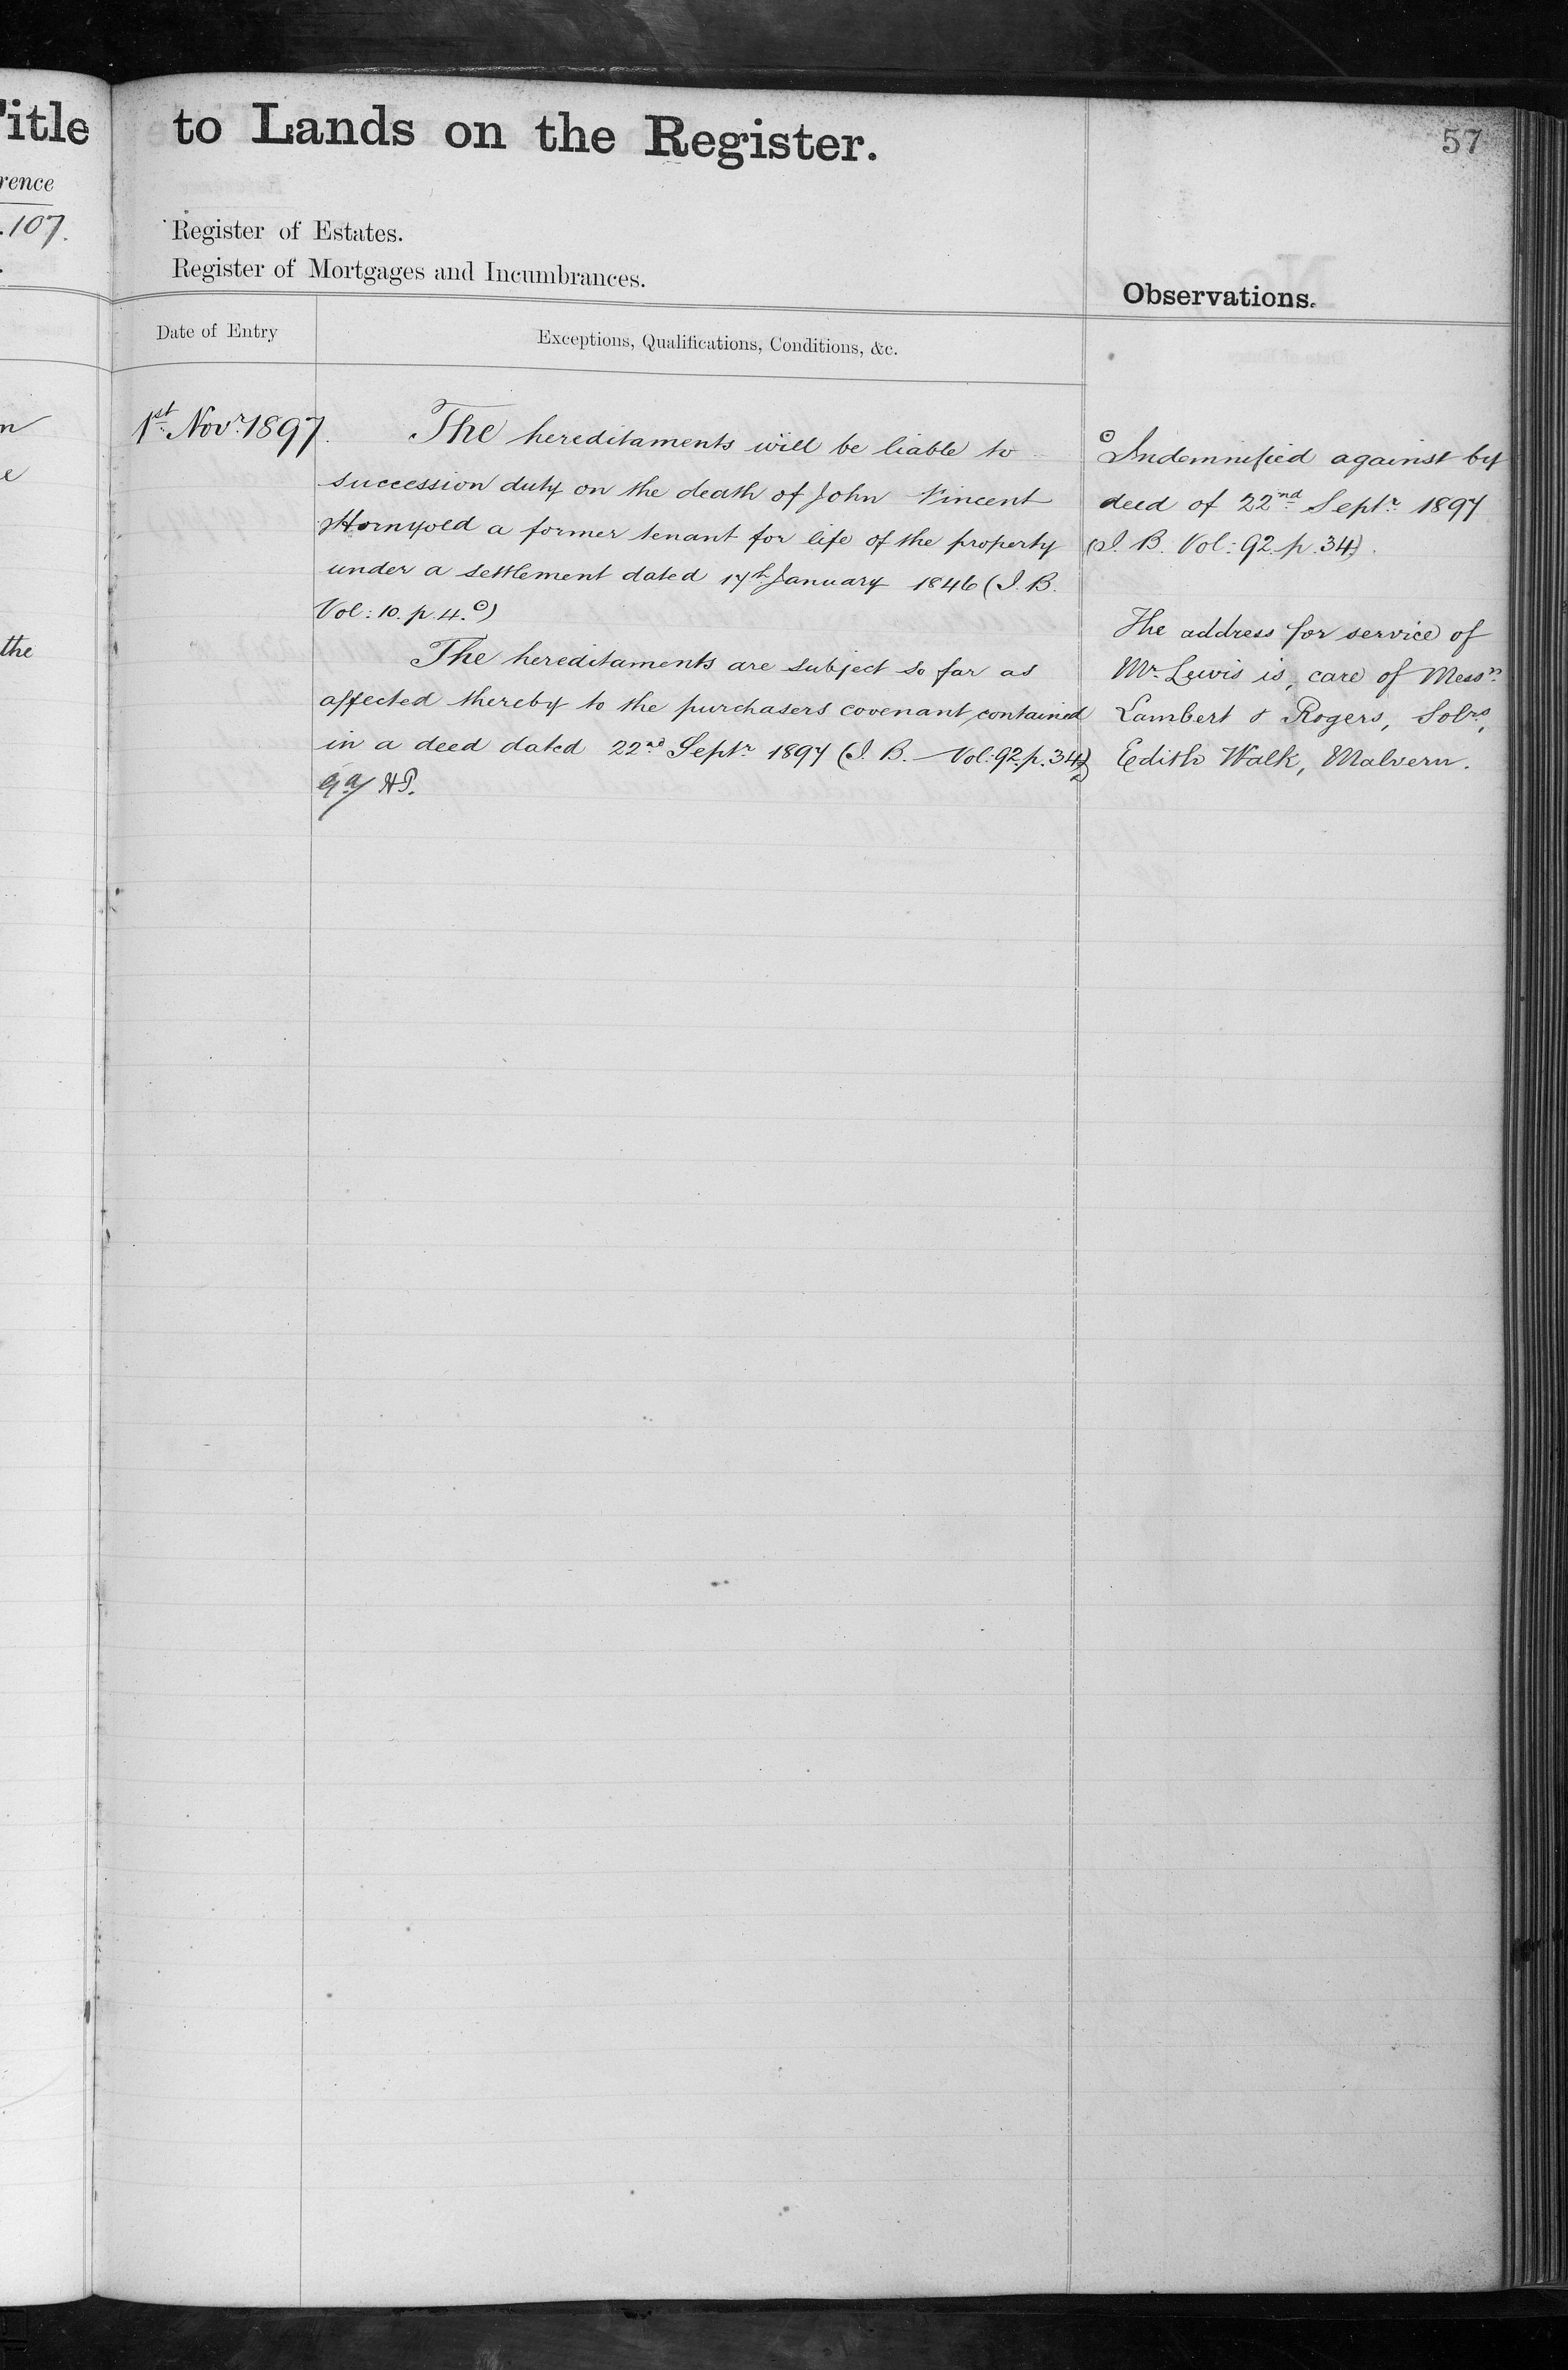 Title
rence
.107.
n
e
the
to Lands on the Register.
57
Register of Estates.
Register of Mortgages and Incumbrances.
Observations.
Date of Entry
Exceptions, Qualifications, Conditions, &c.
1st Novr 1897.
The hereditaments will be liable to
succession duty on the death of John Vincent
Hornyold a former tenant for life of the property
under a settlement dated 17th January 1846 (I. B.
Vol: 10. p. 4.⊙)
The hereditaments are subject so far as
affected thereby to the purchasers covenant contained
in a deed dated 22nd Septr 1897 (I. B. Vol: 92. p. 34)
H.P.
⊙ Indemnified against by
deed of 22nd Septr 1897
(I. B. Vol: 92. p. 34).
The address for service of
Mr. Lewis is, care of Messrs
Lambert & Rogers, Solrs,
Edith Walk, Malvern.